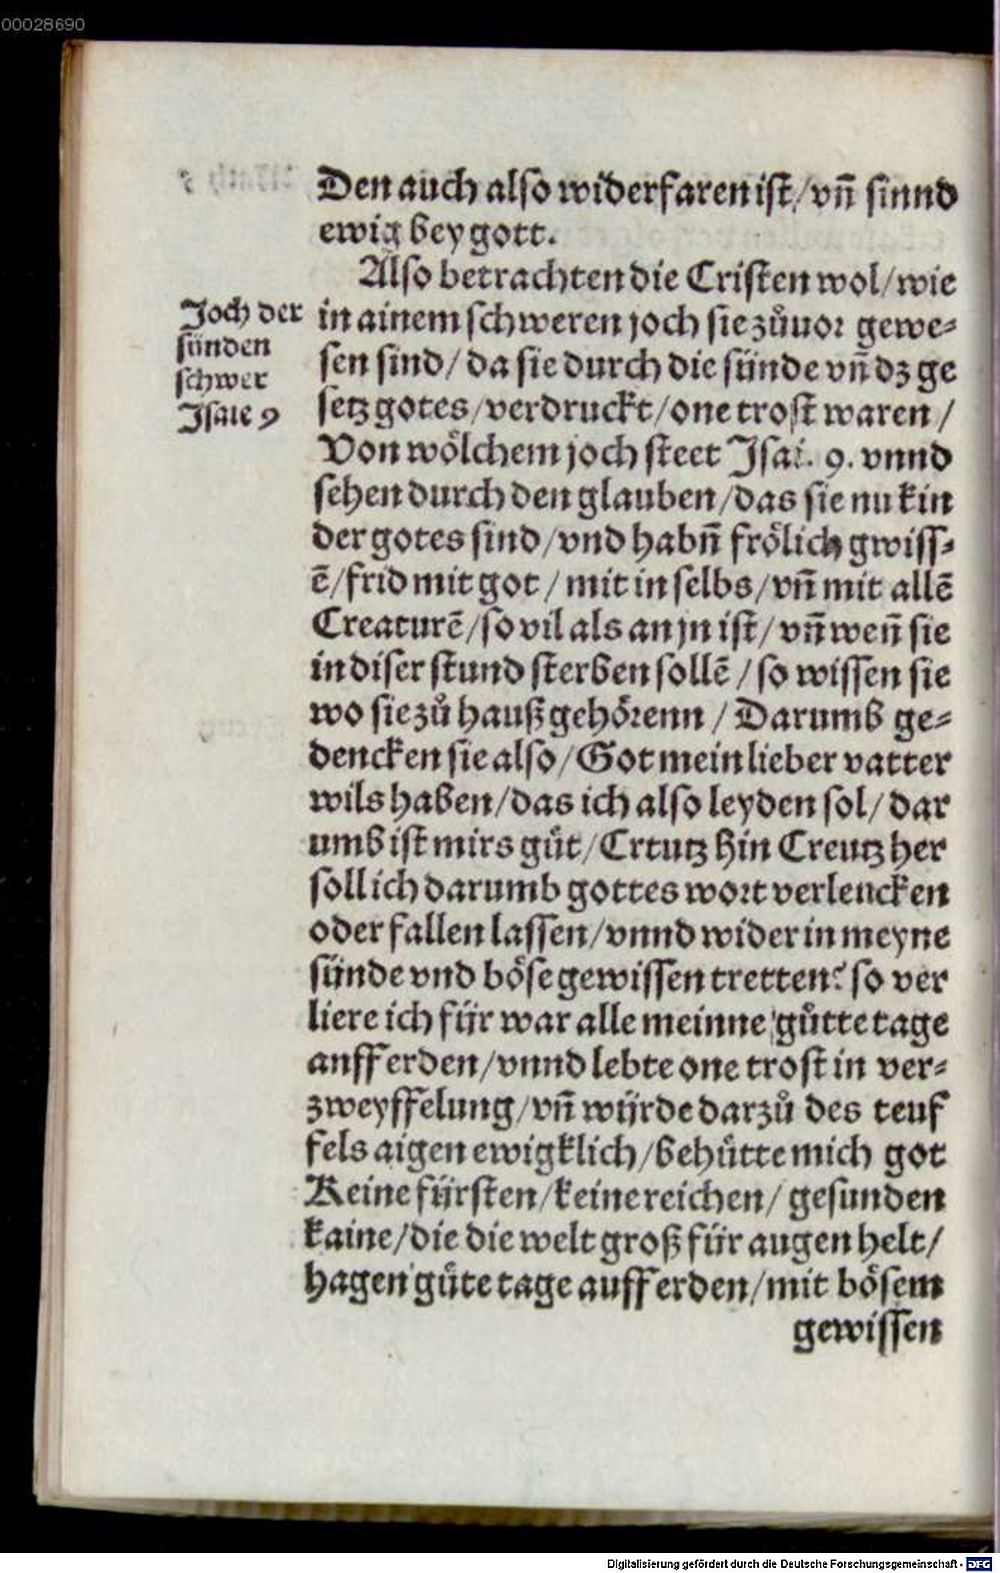 00028690
Den auch also widerfaren ist/ vn̄ sinnd
ewig bey gott.
Also betrachten die Cristen wol/ wie
Joch der
sünden
schwer
Jsaie 9
in ainem schweren joch sie zůuor gewe⸗
sen sind/ da sie durch die sünde vn̄ dz ge
setz gotes/ verdruckt/ one trost waren /
Von woͤlchem joch steet Jsai. 9. vnnd
sehen durch den glauben/ das sie nu kin
der gotes sind/ vnd habn̄ froͤlich gwiss⸗
ē/ frid mit got / mit in selbs/ vn̄ mit allē
Creaturē/ so vil als an jn ist/ vn̄ wen̄ sie
in diser stund sterben sollē / so wissen sie
wo sie zů hauß gehoͤrenn / Darumb ge⸗
dencken sie also/ Got mein lieber vatter
wils haben/ das ich also leyden sol/ dar
umb ist mirs gůt/ Crtutz hin Creutz her
soll ich darumb gottes wort verlencken
oder fallen lassen/ vnnd wider in meyne
sünde vnd boͤse gewissen tretten? so ver
liere ich für war alle meinne gůtte tage
anff erden/ vnnd lebte one trost in ver⸗
zweyffelung/ vn̄ würde darzů des teuf
fels aigen ewigklich/ behuͤtte mich got
Keine fürsten/ keine reichen/ gesunden
kaine/ die die welt groß für augen helt/
hagen gůte tage auff erden/ mit boͤsem
gewissen
Digitalisierung gefördert durch die Deutsche Forschungsgemeinschaft - DFG